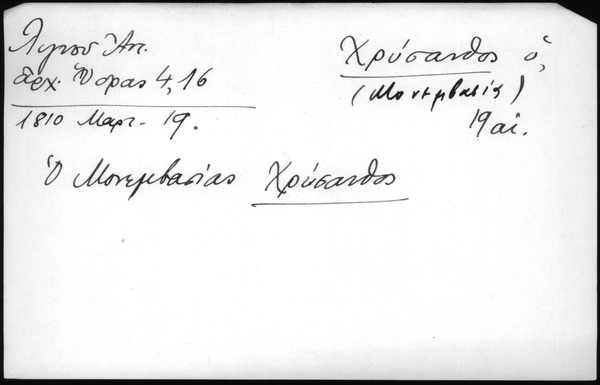 Λιγνοῦ Ἀντ.
ἀρχ. Ὕδρας 4, 16
1810 Μαρτ. 19.
Χρύσανθος ὁ,
(Μονεμβασία)
19 αἰ.
Ὁ Μονεμβασίας Χρύσανθος